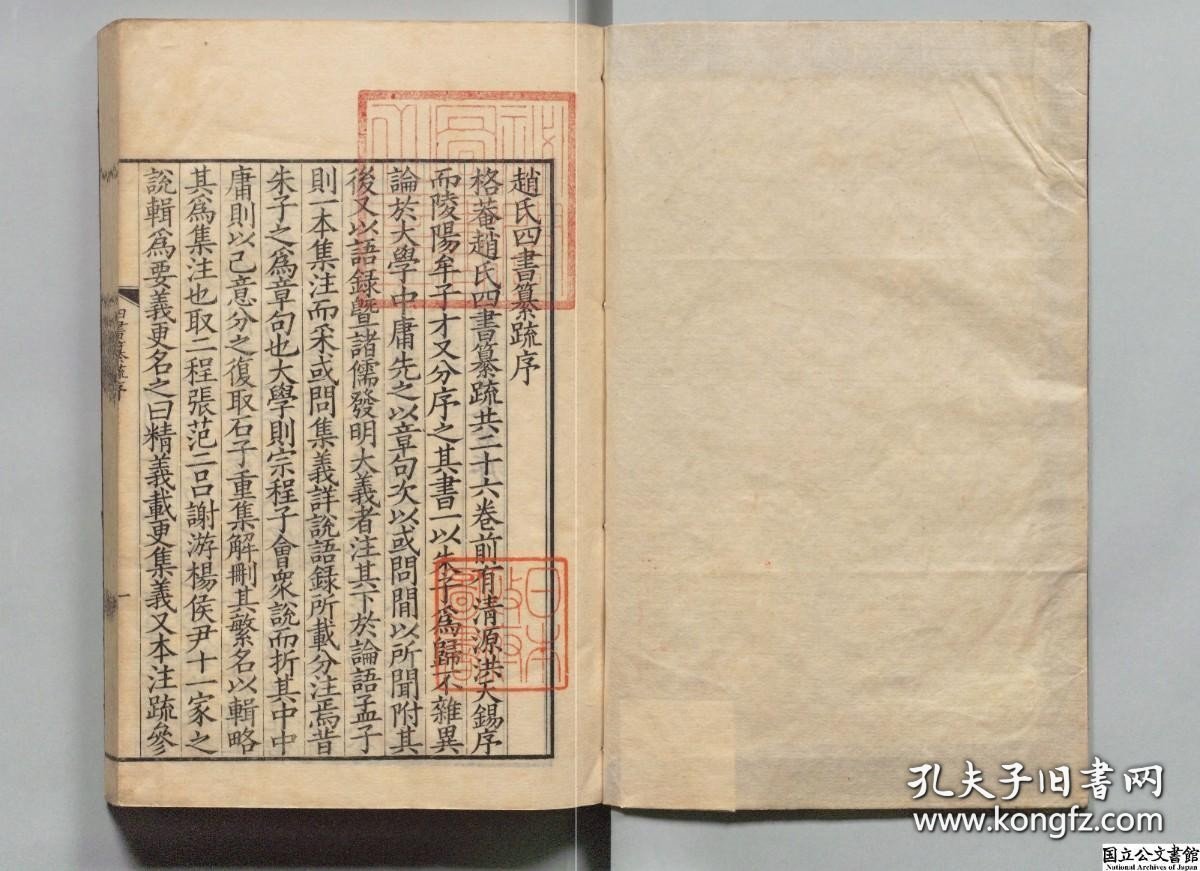 趙氏四書纂疏序
格菴趙氏四書纂疏共二十六卷前有清源洪天錫序
而陵陽牟子才又分序之其書一以朱子爲歸不雜異
論於大學中庸先之以章句次以或問間以所聞附其
後又以語録曁諸儒發明大義者注其下於論語孟子
則一本集注而采或問集義詳說語錄所載分注焉昔
朱子之爲章句也大學則宗程子會衆說而折其中中
庸則以己意分之復取石子重集解刪其繁名以輯略
其爲集注也取二程張范二呂謝游楊侯尹十一家之
說輯爲要義更名之曰精義載更集義又本注疏參
四書纂疏序
一
日本
孔夫子旧书网
www.kongfz.com
国立公文書館
National Archives of Japan